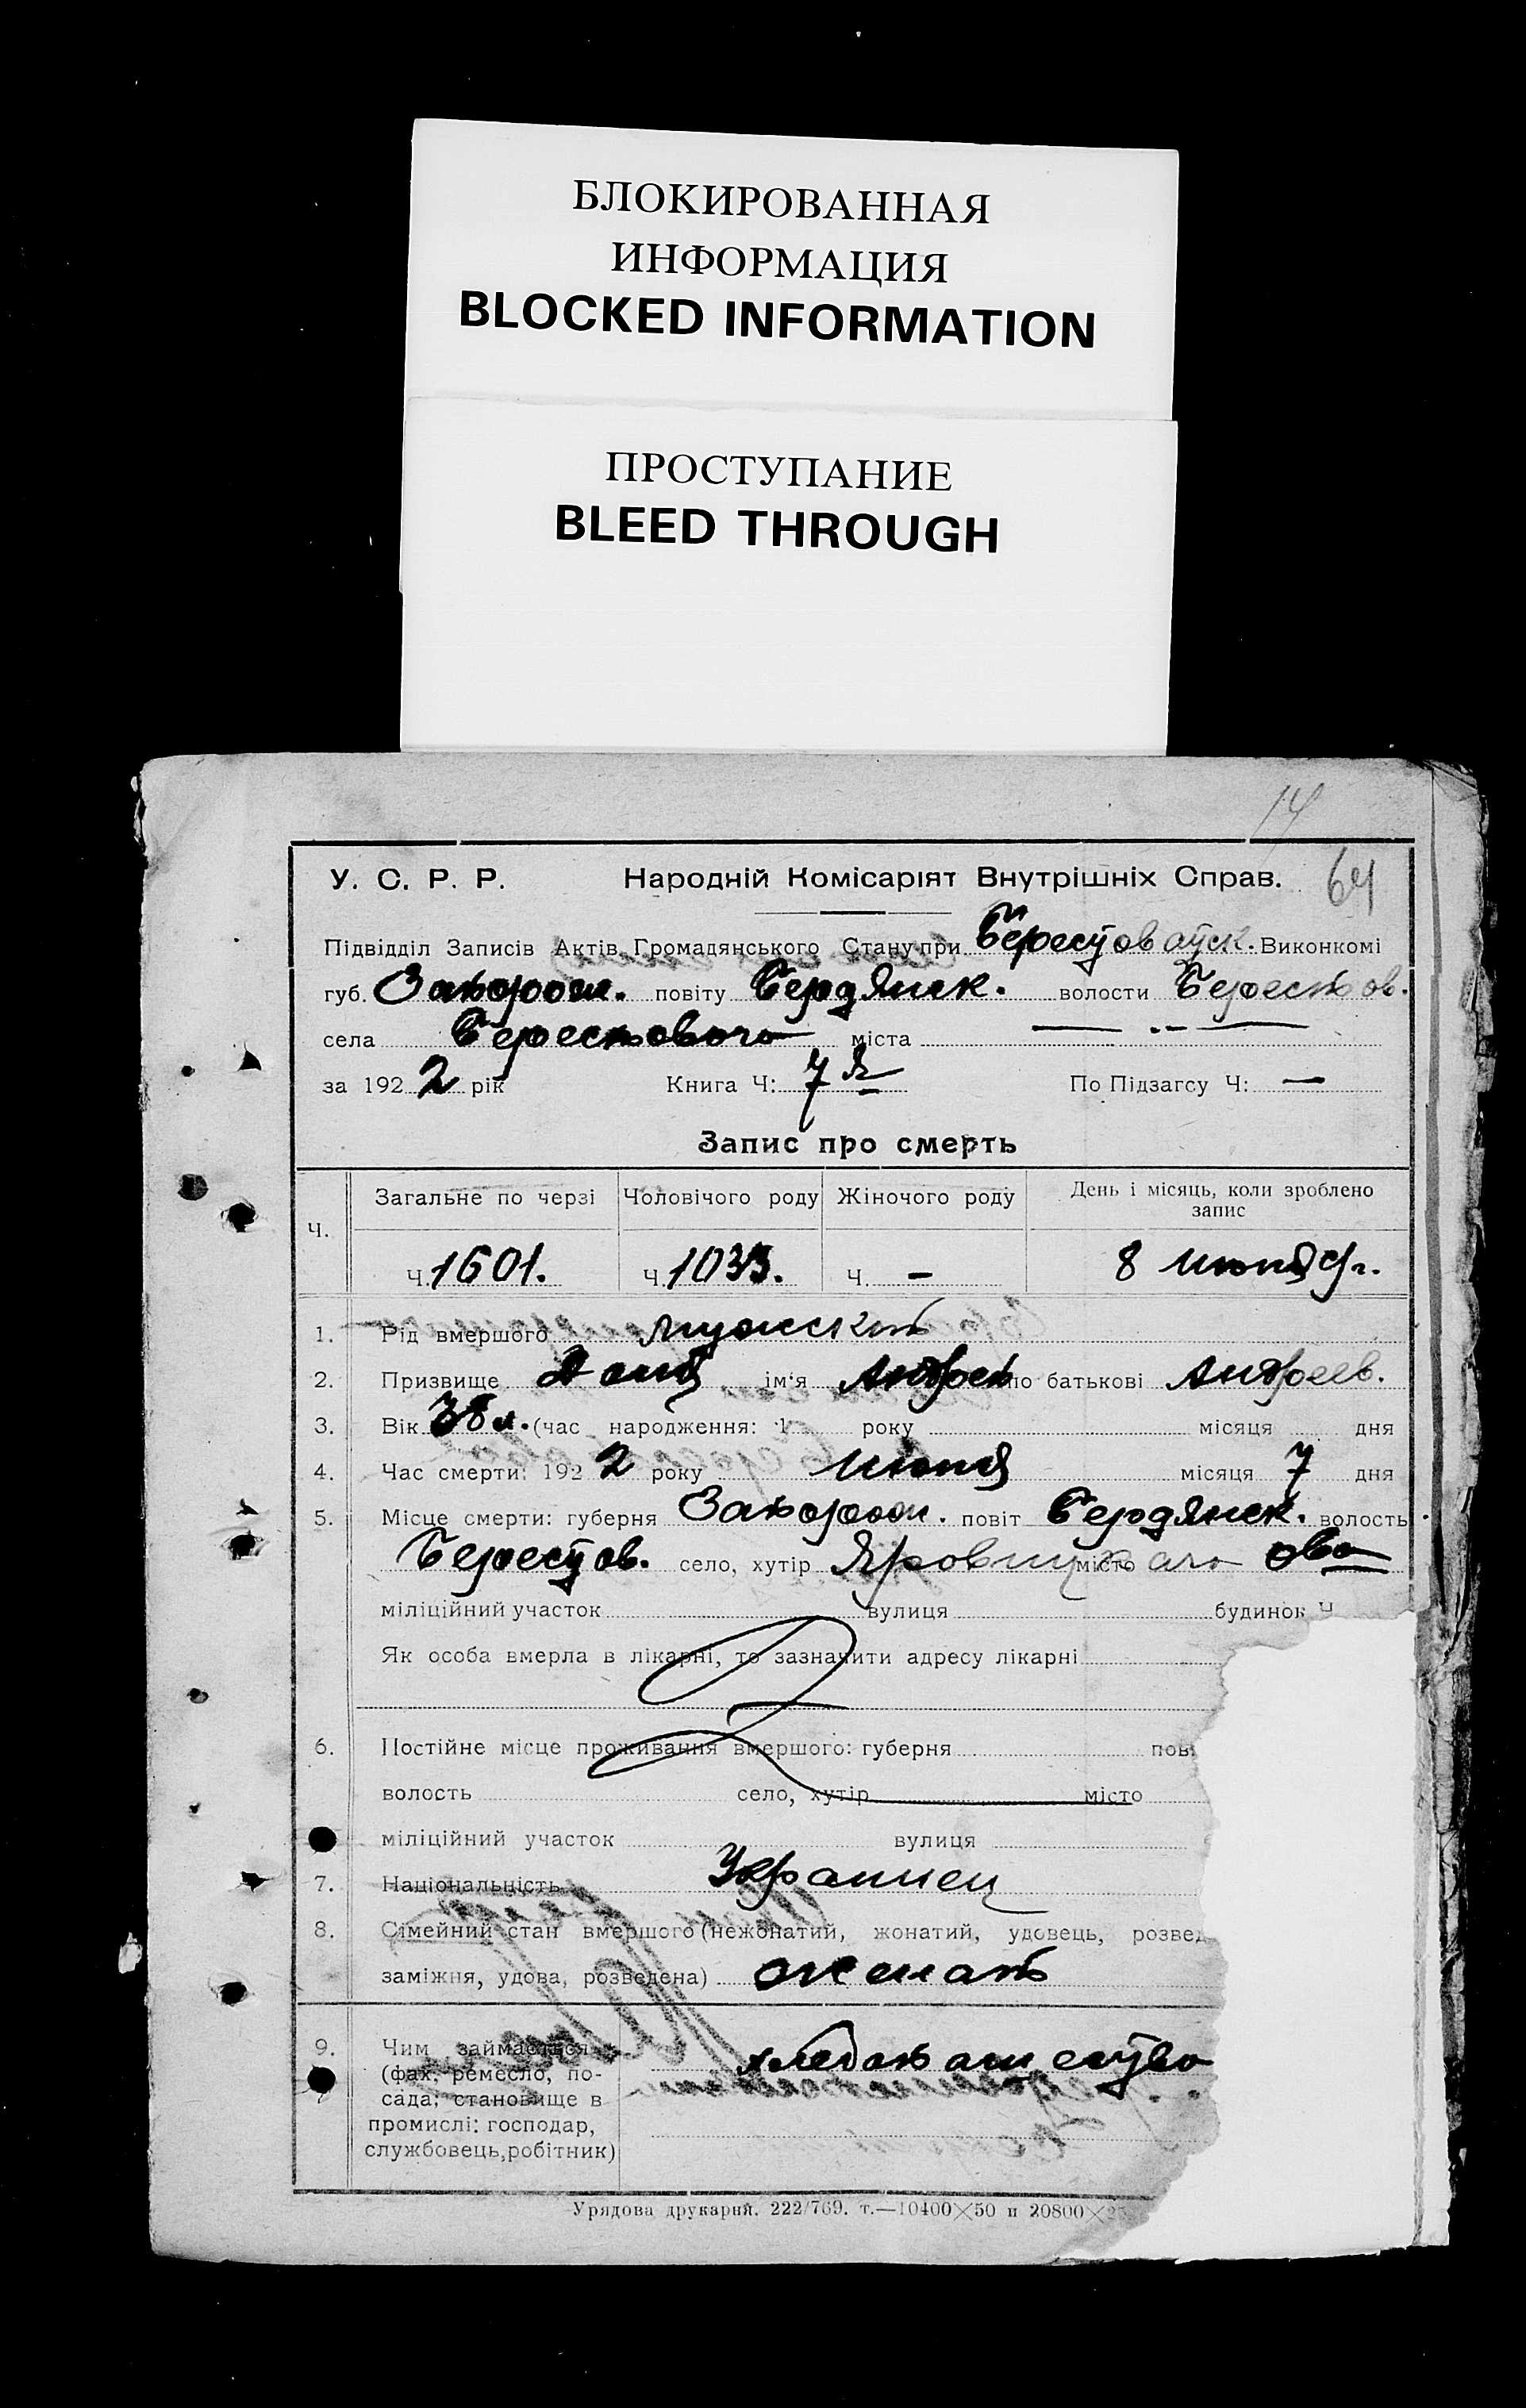 БЛОКИРОВАННАЯ
ИНФОРМАЦИЯ
BLOCKED INFORMATION
ПРОСТУПАНИЕ
BLEED THROUGH
14
У. С. Р. Р. Народній Комісаріят Внутрішніх Справ. 64
Підвідділ Записів Актів Громадянського Стану при Берестоваўск. Виконкомі
губ. Запорож. повіту Бердянск. волости Берестов.
села Берестового міста —
за 1922 рік Книга Ч: 7я По Підзагсу Ч: —
Запис про смерть
Ч. Загальне по черзі Чоловічого роду Жіночого роду День і місяць, коли зроблено
запис
Ч. 1601. Ч. 1033. Ч. — 8 июня
1. Рід вмершого мужской
2. Призвище ім'я Андрей по батькові Андреев.
3. Вік 38 л. (час народження: 1 року місяця дня
4. Час смерти: 1922 року июня місяця 7 дня
5. Місце смерти: губерня Запорож. повіт Бердянск. волость
Берестов. село, хутір місто
міліційний участок вулиця будинок Ч
Як особа вмерла в лікарні, то зазначити адресу лікарні
6. Постійне місце проживання вмершого: губерня пові
волость село, хутір місто
міліційний участок вулиця
7. Національність Украинец
8. Сімейний стан вмершого (нежонатий, жонатий, удовець, розвед
заміжня, удова, розведена) женат
9. Чим займається
(фах, ремесло, по-
сада, становище в
промислі: господар,
службовець, робітник) хлебопашество
Урядова друкарня. 222/769. т.—10400×50 и 20800×25